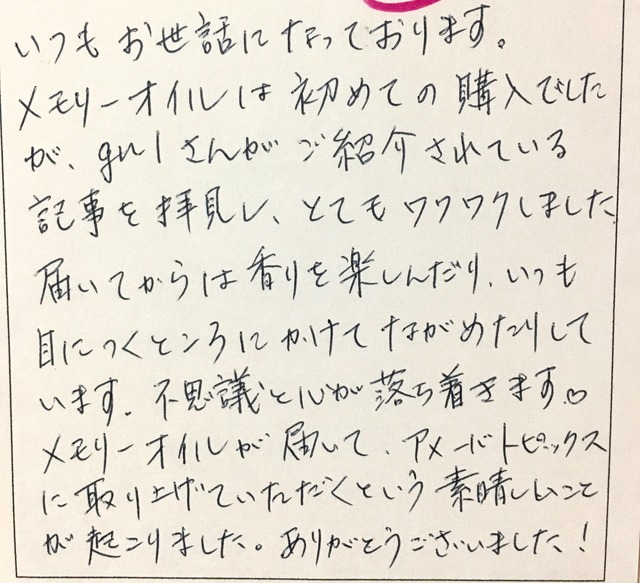 いつもお世話になっております。
メモリーオイルは初めての購入でした
が、gulさんがご紹介されている
記事を拝見し、とてもワクワクしました
届いてからは香りを楽しんだり、いつも
目につくところにかけてながめたりして
います。不思議と心が落ち着きます♡
メモリーオイルが届いて、アメーバトピックス
に取り上げていただくという素晴しいこと
が起こりました。ありがとうございました！